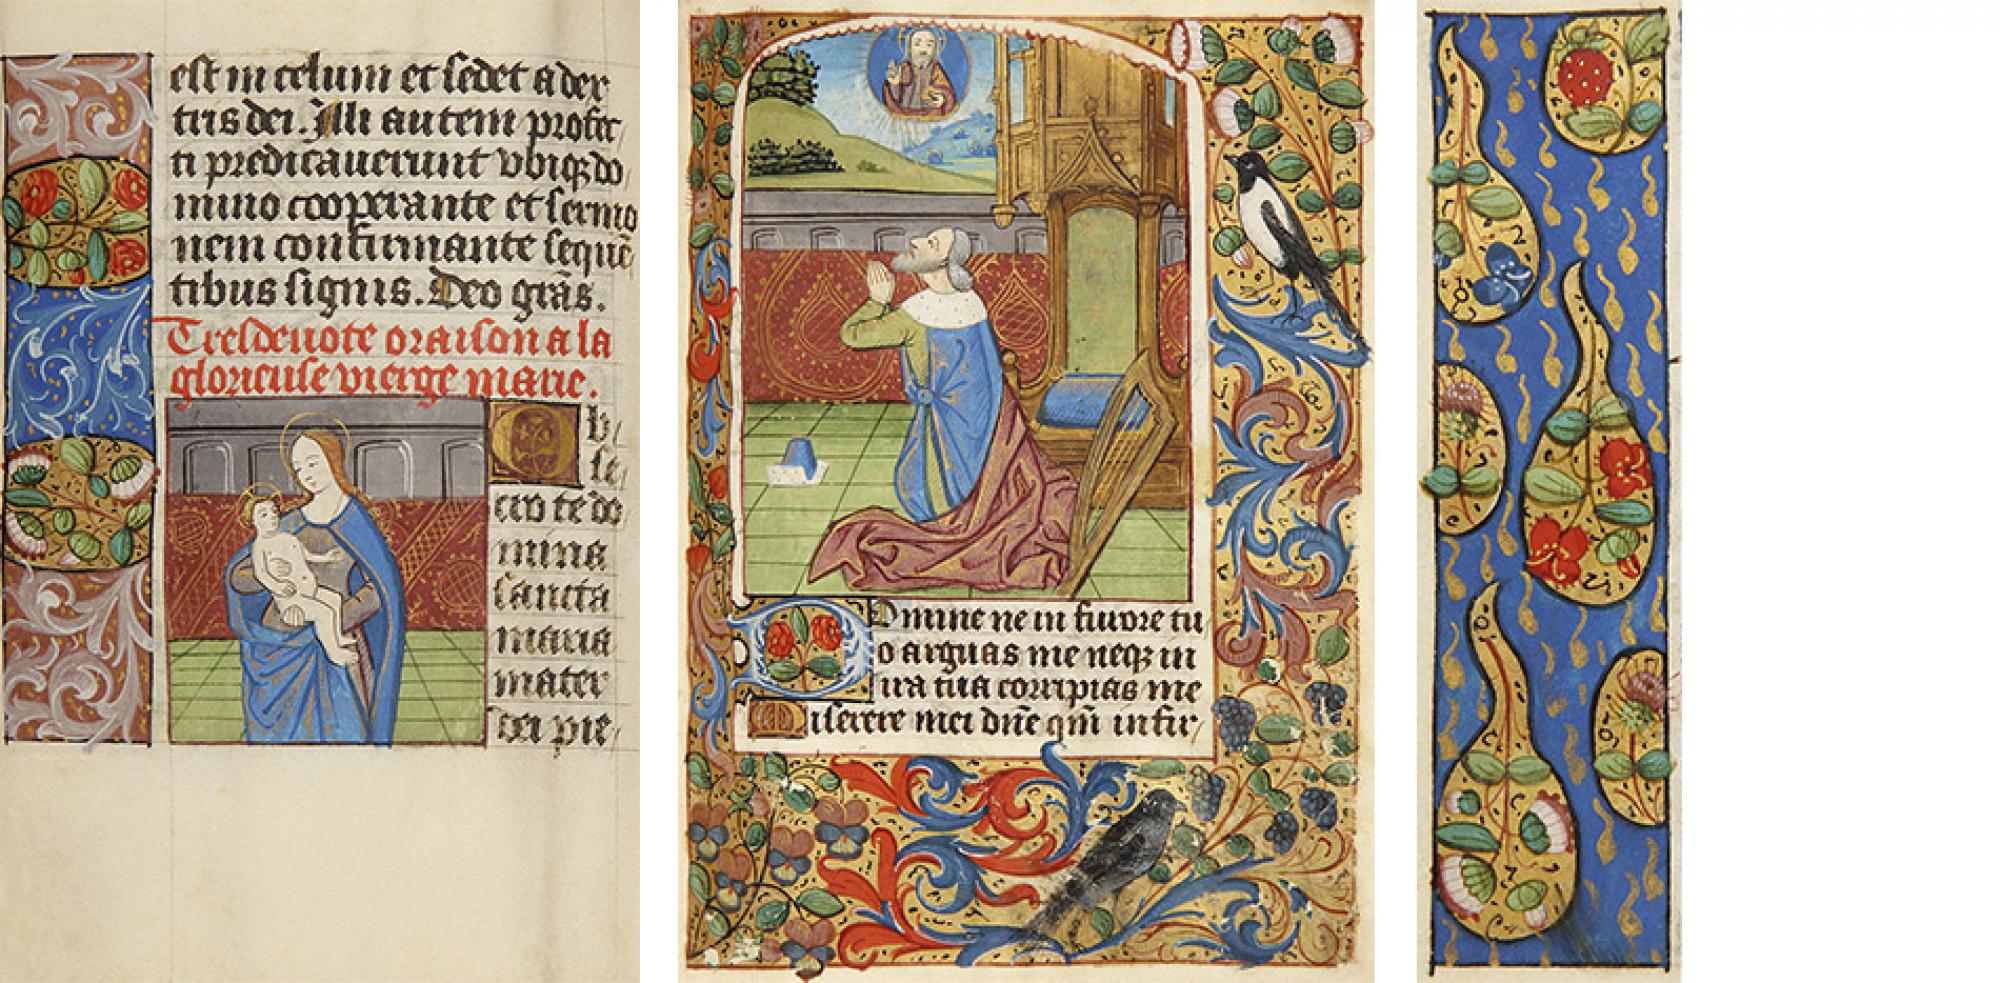 est in celum et sedet a dex
tris dei. Illi autem profec
ti predicauerunt vbiqꝫ do
mino cooperante et sermo
nem confirmante sequē
tibus signis. Deo grãs.
Tresdeuote oraison a la
glorieuse vierge marie.
Ob
se
cro te do
mina
sancta
maria
mater
dei pie
Domine ne in furore tu
o arguas me neqꝫ in
ira tua corripias me
Miserere mei dñe qm̃ infir